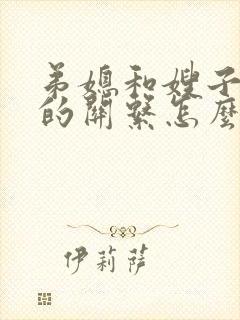 弟媳和嫂子
的關繫怎麼
伊莉薩